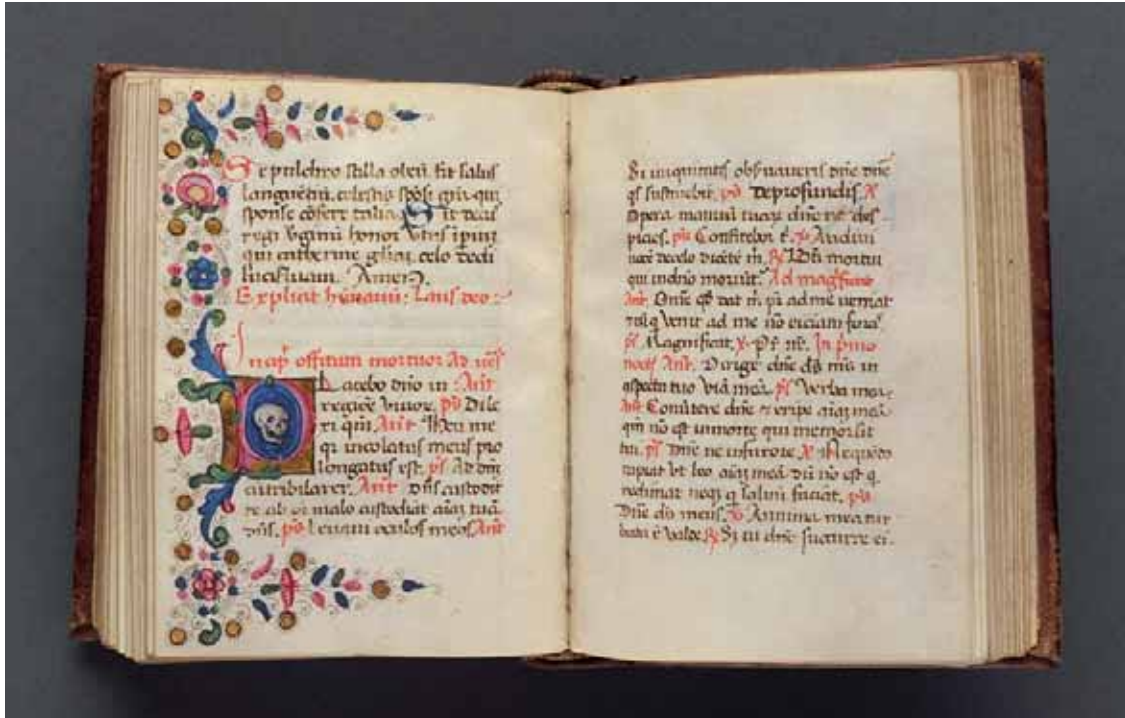 e pulchro stilla oleū fit salus
languētiū. celestis spōs' grā. qui
sponse cōfert talia. Sit decus
regi v̄ginū honor
qui catherine glīaȝ celo dedi
Amen.
Explicit hēnariū: Laus deo:
Incip̄ offitium mortuoȝ Ad ues̄
Placebo dn̄o in: Ant̄
regiōe viuoȝ. ps̄ Dile
xi qm̄. Ant̄ Heu me
qȝ incolatus meus pro
longatus est. ps̄ Ad dn̄ȝ
cū tribularer. Ant̄ Dn̄s custodit
te ab oī malo custodiat aīaȝ tuā
dn̄s. ps̄ Leuaui oculos meos. Ant̄
Si iniquitates obseruaueris dn̄e dn̄e
qs sustinebit. ps̄ Deprofundis. A
Opera manuū tuaȝ dn̄e ne des
picies. ps̄ Confitebor t̄. Audiui
uocē de celo dicētē m̄. Bt̄i mortui
qui in dn̄o moriūt̄. Ad magt̄
Ant̄ Omē qd̄ dat m̄. pr̄ ad me ueniat
⁊ eū q̄ venit ad me nō eiciam foras
ps̄ Magnificat. Pr̄ nr̄. In p̄mo
noct̄ Ant̄. Dirige dn̄e ds̄ ms̄ in
aspectu tuo viā meā. ps̄ Verba mea
Ant̄ Conūtere dn̄e ⁊ eripe aīaȝ meā
qm̄ nō est in morte qui memor sit
tui. ps̄ Dn̄e ne in furore. A Nequān
rapiat vt leo aīaȝ meā dū nō est q̄
redimat neqȝ q̄ saluū faciat. ps̄
Dn̄e ds̄ meus. Anima mea tur
bata ē valde. Sȝ tu dn̄e sucurre ei.